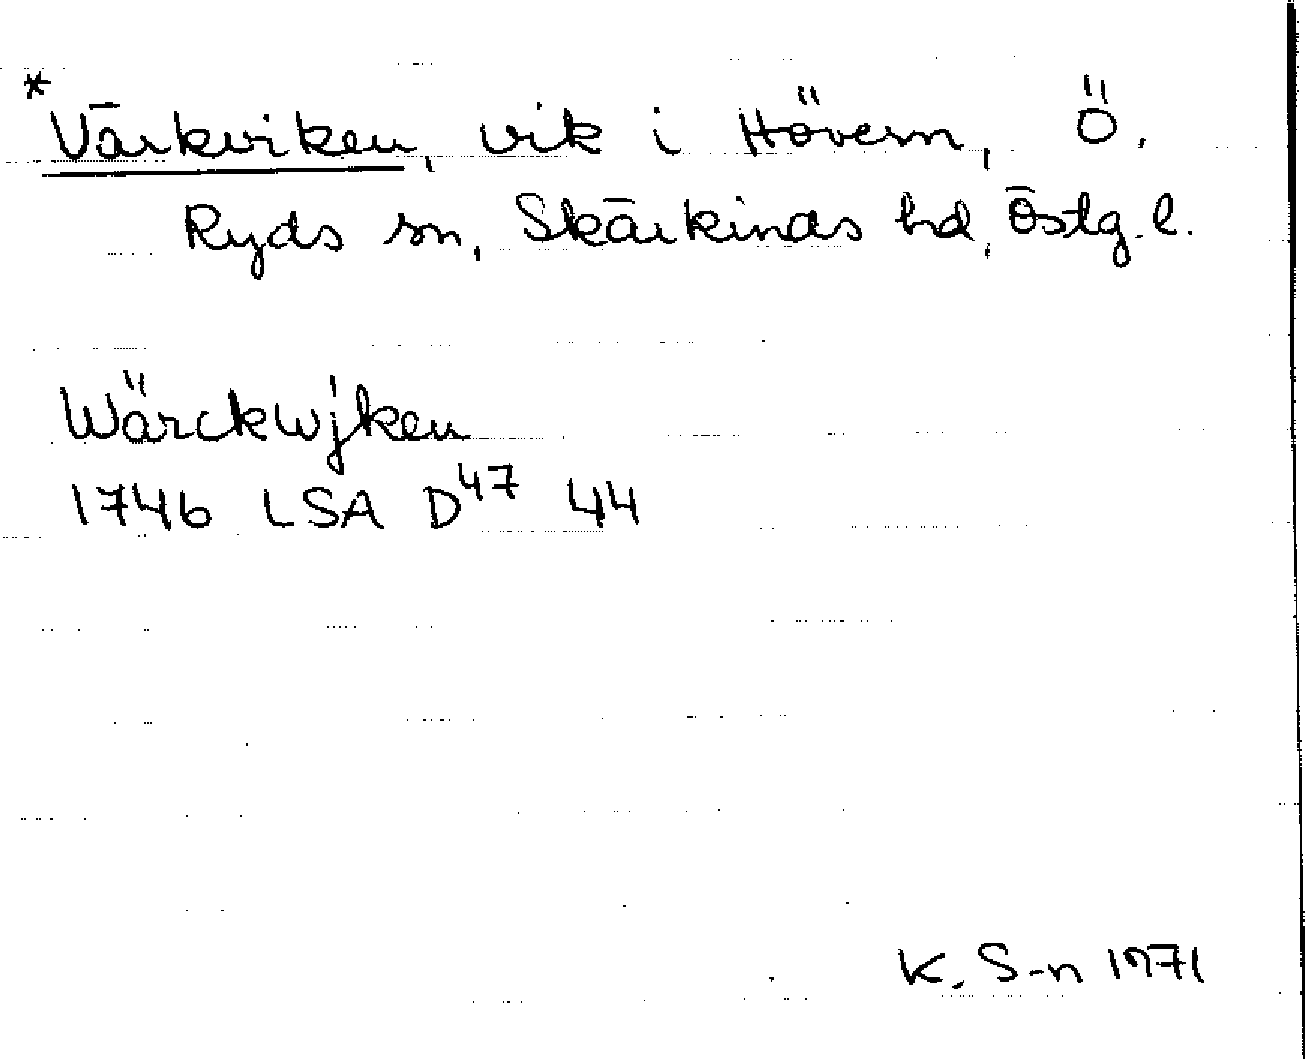 *Värkviken, vik i Hövern, Ö.
Ryds sn, Skärkinds hd, Östg. l.
Wärckwjken
1746 LSA D47 44
K. S-n 1971